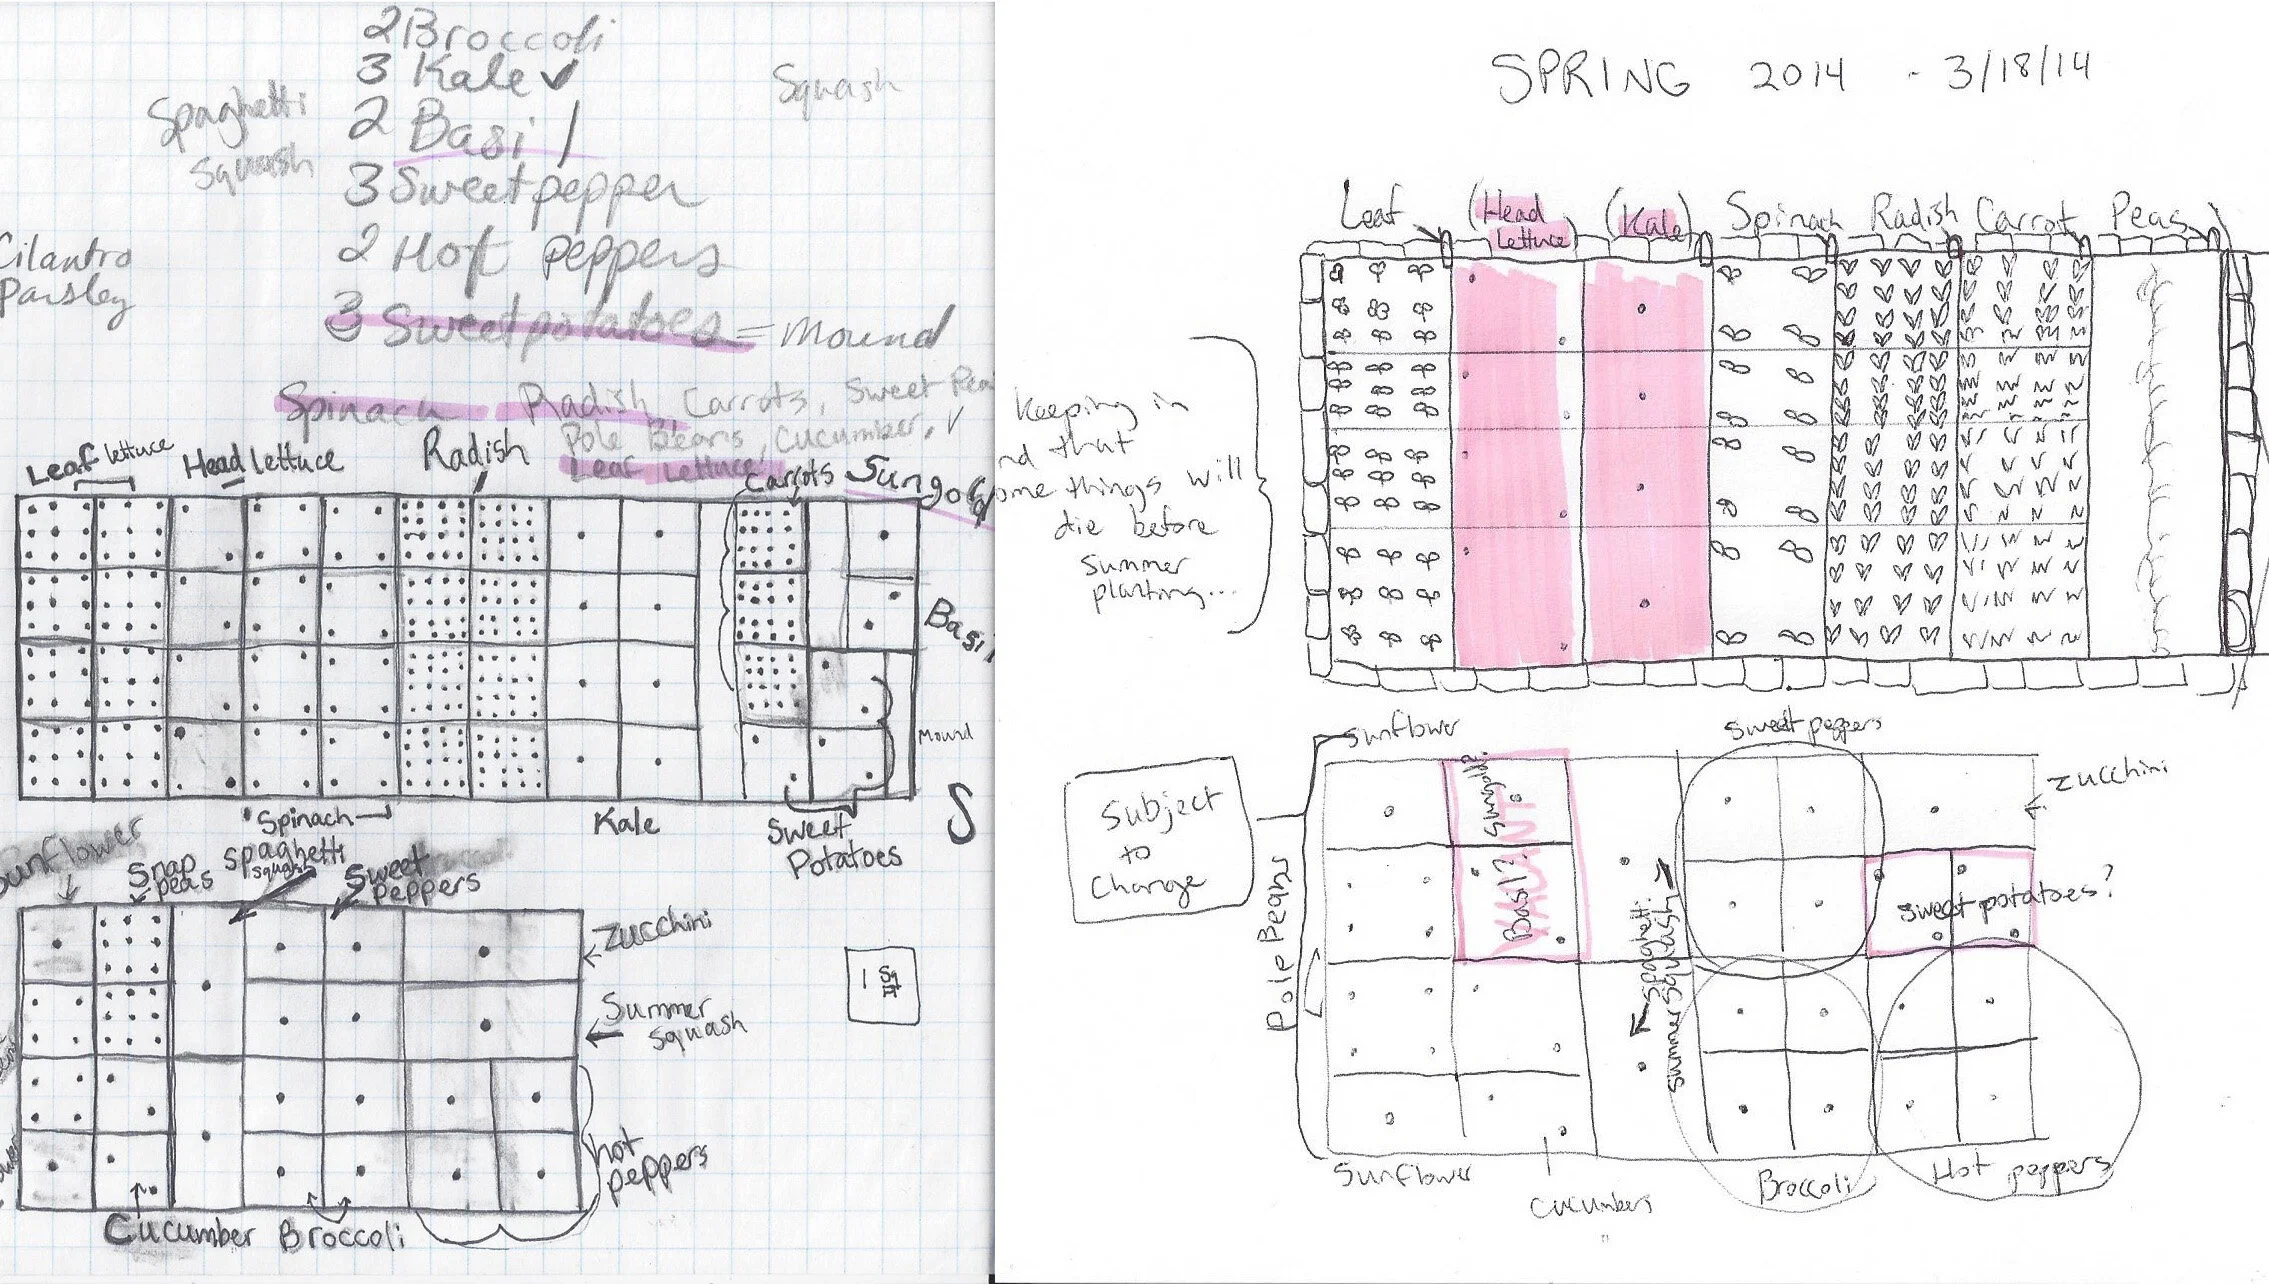 2 Broccoli
3 Kale ✓
Squash
Spaghetti
squash
2 Basil
3 Sweet pepper
2 Hot peppers
Cilantro
Parsley
3 Sweet potatoes = mound
Spinach Radish, Carrots, Sweet Pea
Pole Beans, Cucumber,
Leaf Lettuce,
Leaf lettuce
Head lettuce
Radish
Carrots
Sungold
Basil
Mound
Spinach
Kale
Sweet
Potatoes
S
Sunflower
Snap
peas
Spaghetti
squash
Sweet
Peppers
Broccoli
Zucchini
Summer
Squash
hot
peppers
Cucumber
Broccoli
1 sq
ft
SPRING 2014 - 3/18/14
Leaf
(Head
lettuce)
(Kale)
Spinach
Radish
Carrot
Peas
keeping in
nd that
ome things will
die before
summer
planting...
Subject
to
Change
Sunflower
Sweet peppers
Zucchini
Sungold?
Basil?
VACANT
Pole Beans
Spaghetti
Summer squash
Sweet potatoes?
Sunflower
Cucumbers
Broccoli
Hot peppers